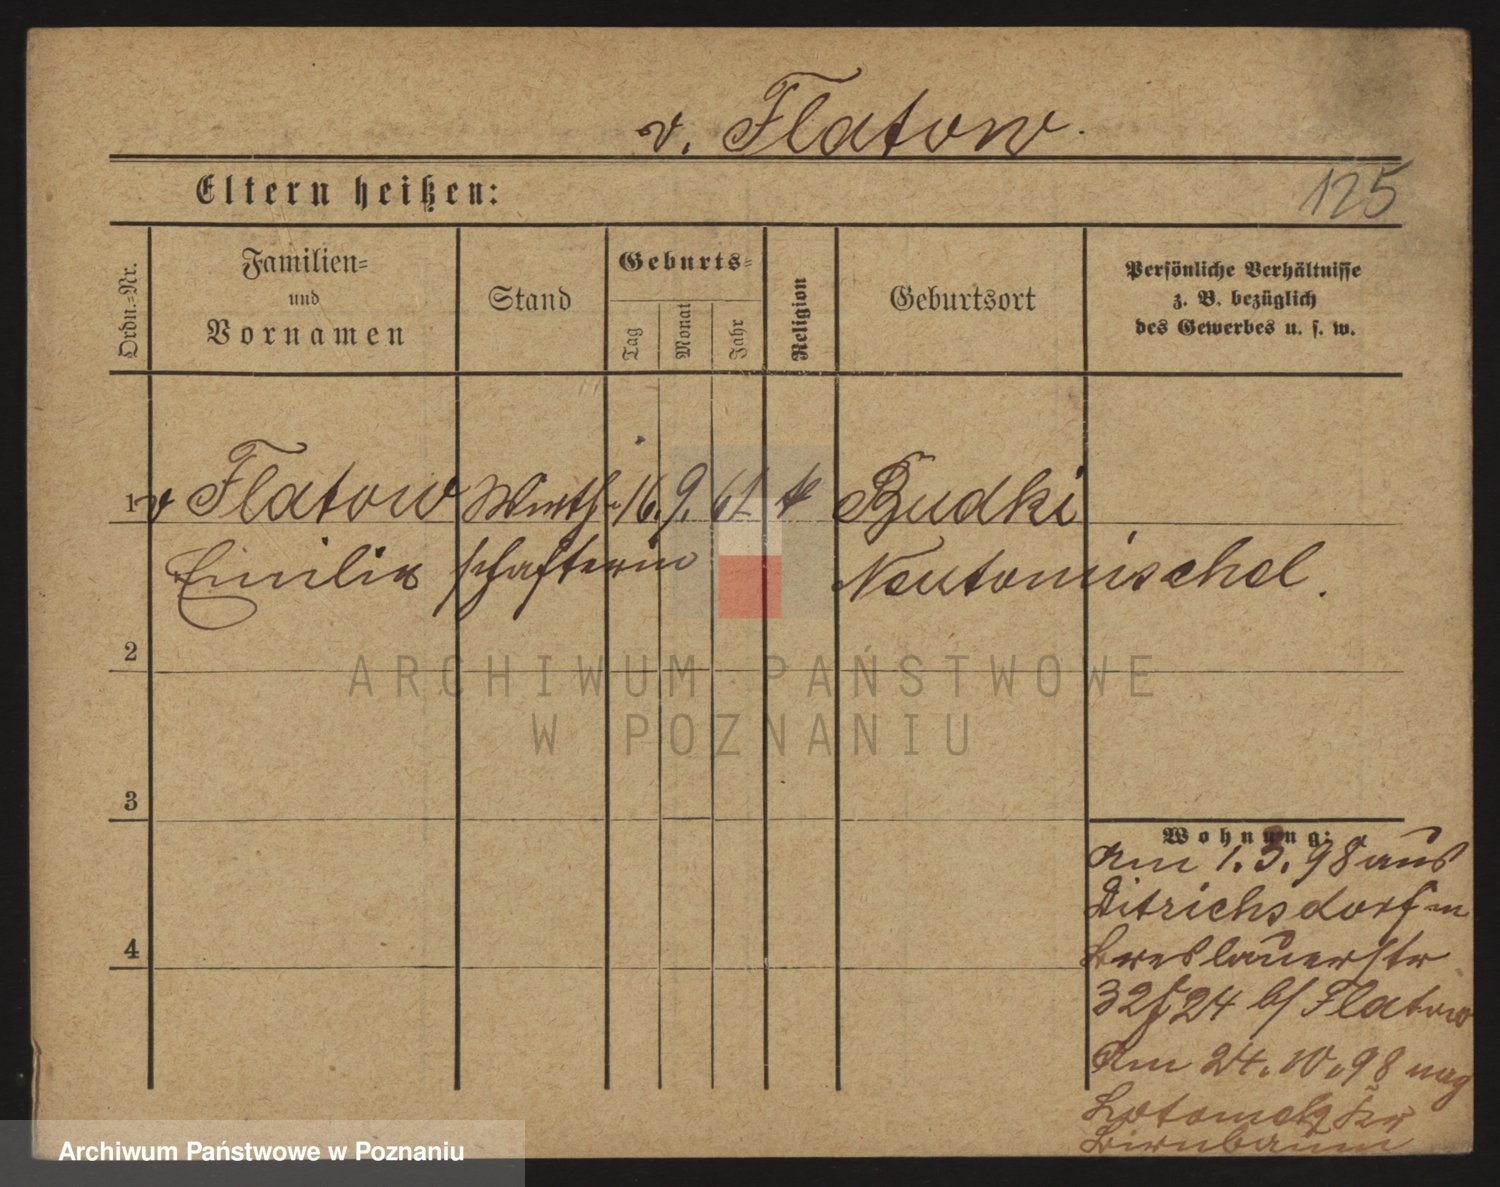 v. Flatow.
Eltern heißen:
125
Ordn.-Nr.
Familien-
und
Vornamen
Stand
Geburts-
Tag
Monat
Jahr
Religion
Geburtsort
Persönliche Verhältnisse
z. B. bezüglich
des Gewerbes u. s. w.
1 v Flatow Wirth- 16. 9. 61 k Budki
Emilie schafterin Neutomischel.
2
3
4
Wohnung:
Am 1.3.98 aus
Ditrichsdorf n
Breslauerstr
32 24 b/ Flatow
Am 24.10.98 nag
Birnbaum
ARCHIWUM PAŃSTWOWE
W POZNANIU
Archiwum Państwowe w Poznaniu